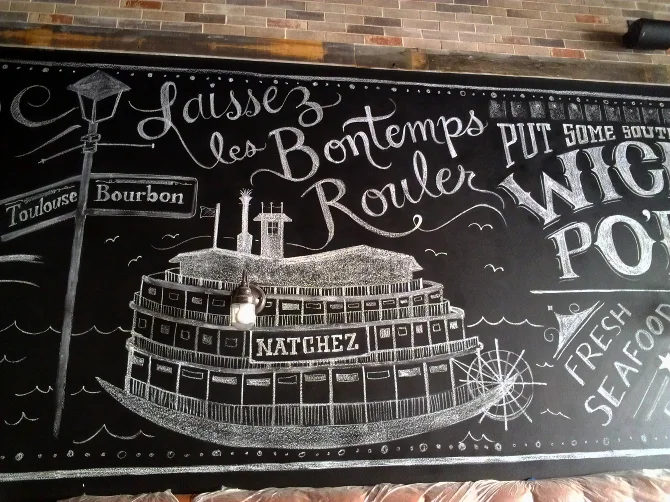 Laissez
les Bontemps
Rouler
Toulouse
Bourbon
NATCHEZ
PUT SOME
FRESH
SEAFOOD